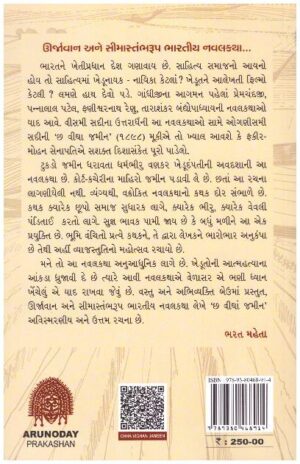 ઊર્જાવાન અને સીમાસ્તંભરૂપ ભારતીય નવલકથા...
ભારતને ખેતીપ્રધાન દેશ ગણાવાય છે. સાહિત્ય સમાજનો આયનો
હોય તો સાહિત્યમાં ખેડૂનાયક - નાયિકા કેટલાં? ખેડૂતને આલેખતી ફિલ્મો
કેટલી? લમણે હાથ દેવો પડે. ગાંધીજીના આગમન પહેલાં પ્રેમચંદજી,
પન્નાલાલ પટેલ, ફણીશ્વરનાથ રેણુ, તારાશંકર બંદ્યોપાધ્યાયની નવલકથાઓ
યાદ આવે. વીસમી સદીના ઉત્તરાર્ધની આ નવલકથાઓ સામે ઓગણીસમી
સદીની 'છ વીઘાં જમીન' (૧૮૯૮) મૂકીએ તો ખ્યાલ આવશે કે ફકીર-
મોહન સેનાપતિએ સશક્ત દિશાસંકેત પૂરો પાડેલો.
ટુકડો જમીન ધરાવતા ધર્મભીરુ વણકર ખેડૂદંપતીની અવદશાની આ
નવલકથા છે. કોર્ટ-કચેરીના માહિરો જમીન પડાવી લે છે. છતાં આ રચના
લાગણીઘેલી નથી. વ્યંગ્યથી, વક્રોકિત નવલકથાનો કથક દોર સંભાળે છે.
કથક ક્યારેક છૂપો સમાજ સુધારક લાગે, ક્યારેક ભીરુ, ક્યારેક વેવલી
પંડિતાઈ કરતો લાગે. સુજ્ઞ ભાવક પામી જાય છે કે બધું મળીને આ એક
પ્રયુક્તિ છે. ભૂમિ વંચિતો પ્રત્યે કથકને, ને તદ્વારા લેખકને ભારોભાર અનુકંપા
છે તેથી અહીં વ્યાજસ્તુતિનો મહોત્સવ રચાયો છે.
મને તો આ નવલકથા અનુઆધુનિક લાગે છે. ખેડૂતોની આત્મહત્યાના
આંકડા ધ્રુજાવી દે છે ત્યારે આવી નવલકથાએ વેળાસર એ ભણી ધ્યાન
ખેંચેલું એ યાદ રાખવા જેવું છે. વસ્તુ અને અભિવ્યક્તિ બેઉમાં પ્રસ્તુત,
ઊર્જાવાન અને સીમાસ્તંભરૂપ ભારતીય નવલકથા લેખે 'છ વીઘાં જમીન'
અવિસ્મરણીય અને ઉત્તમ રચના છે.
ભરત મહેતા
ARUNODAY
PRAKASHAN
CHHA VIGHAN JAMEEN
₹ : 250-00